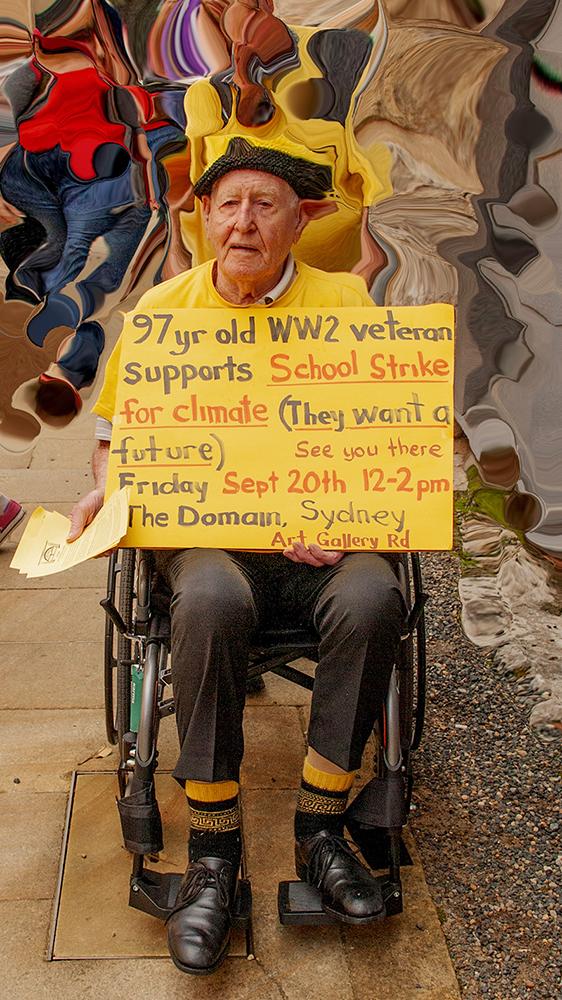 97yr old WW2 veteran
supports School Strike
for climate (They want a
future) See you there
Friday Sept 20th 12-2pm
The Domain, Sydney
Art Gallery Rd